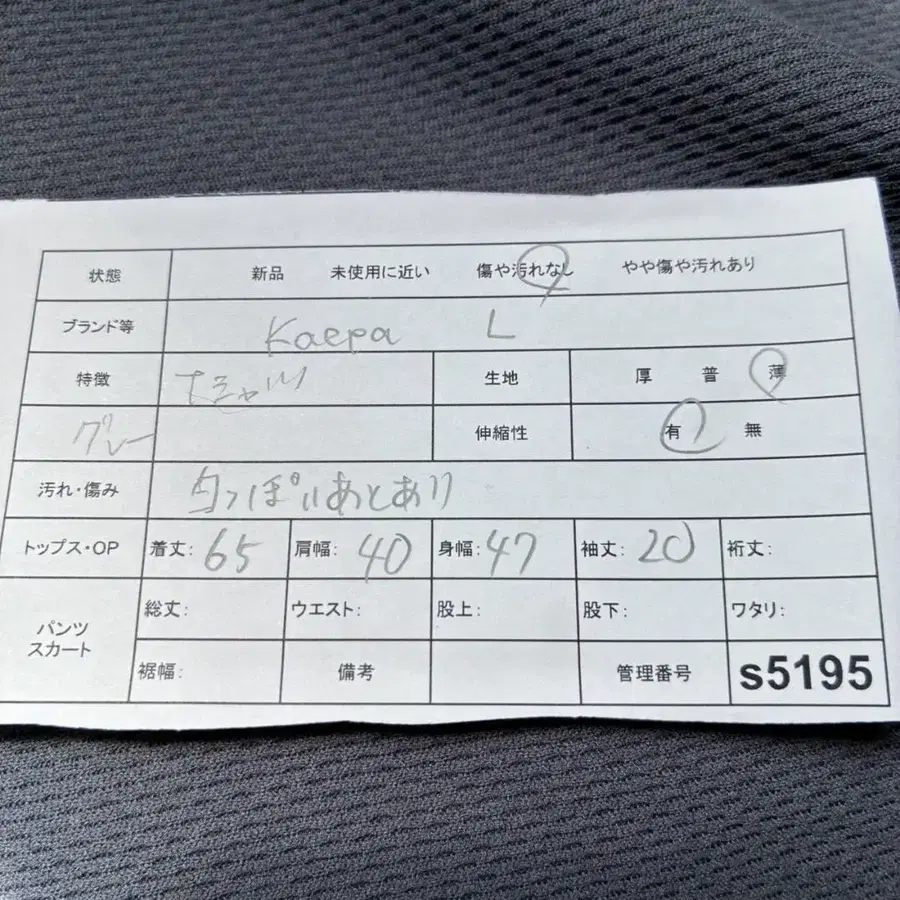 状態 新品 未使用に近い 傷や汚れなし やや傷や汚れあり
ブランド等 Kaepa L
特徴 生地 厚 普 薄
グレー 伸縮性 有 無
汚れ・傷み 白っぽいあとあり
トップス・OP 着丈: 65 肩幅: 40 身幅: 47 袖丈: 20 裄丈:
パンツ スカート 総丈: ウエスト: 股上: 股下: ワタリ:
裾幅: 備考 管理番号 s5195